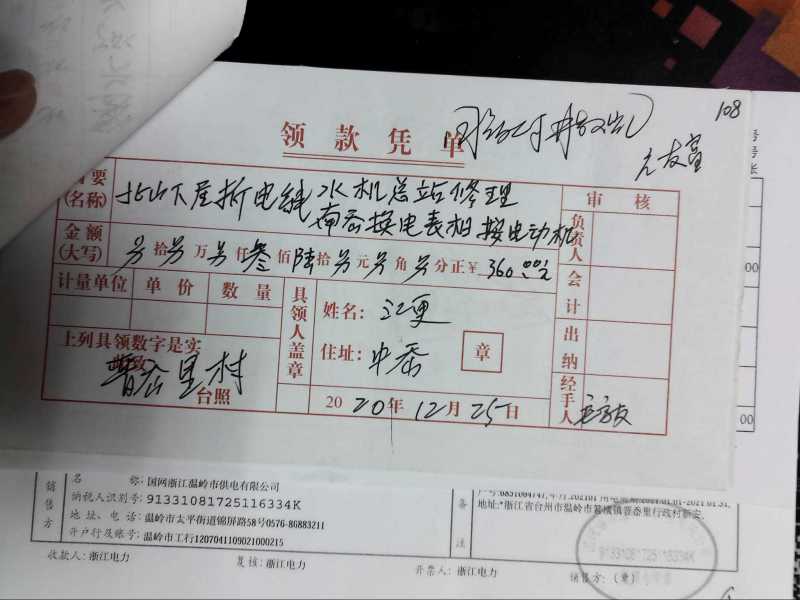 108
领款凭单
摘要
(名称)
北山下屋拆电线 水机总站修理
南岙换电表相接电动机
审核
金额
(大写)
另拾另万另仟叁佰陆拾另元另角另分正¥360.00元
负责人
会计
出纳
经手人
计量单位 单价 数量
具领人盖章
姓名:
江更
住址:中岙
章
上列具领数字是实
晋岙里村
台照
2020年12月25日
销售方
名 称:国网浙江温岭市供电有限公司
纳税人识别号:91331081725116334K
地 址、电 话:温岭市太平街道锦屏路58号0576-86883211
开户行及账号:温岭市工行1207041109021000215
备注
地址:*浙江省台州市温岭市箬横镇晋岙里行政村新安.
91331081725116334K
收款人:浙江电力
复核:浙江电力
开票人:浙江电力
销售方:(章)